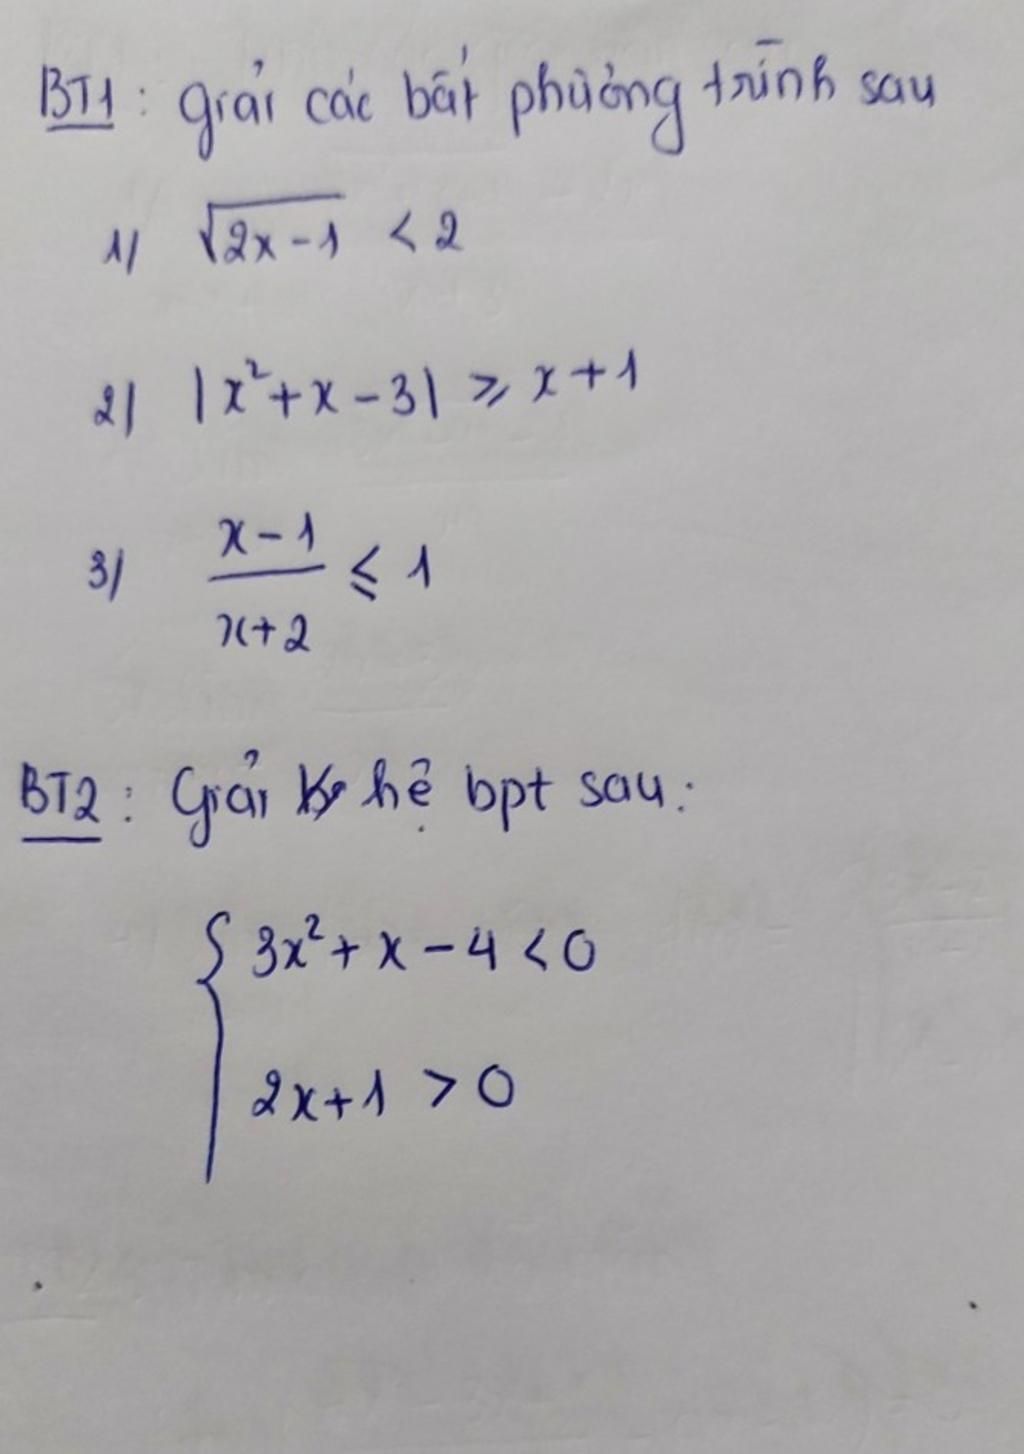 BT1: giải các bất phương trình sau
1/ √2x-1 < 2
2/ |x²+x-3| ⩾ x+1
3/ x-1 ⩽ 1
x+2
BT2: Giải hệ bpt sau:
{ 3x²+x-4<0
2x+1 > 0